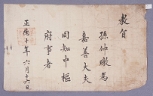 敎旨
孫仲暾爲
嘉善大夫
同知中樞
府事者
正德十年六月十六日